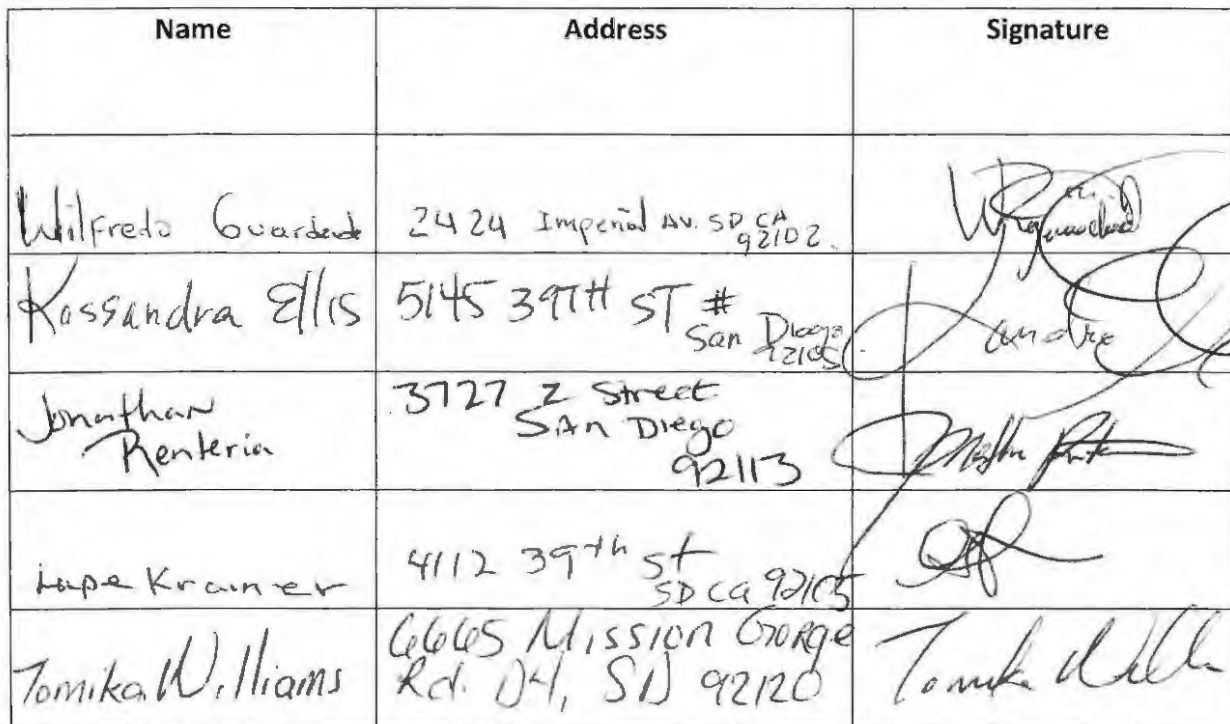 Name Address Signature
Wilfredo 2424 Imperial Av. SD CA
92102
Kassandra Ellis 5145 39TH ST #
San Diego
92105
Jonathan 3727 Z Street
Renteria San Diego
92113
Lupe Kramer 4112 39th St
SD Ca 92105
Tomika Williams 6665 Mission Gorge Tomika
Rd. D4, SD 92120